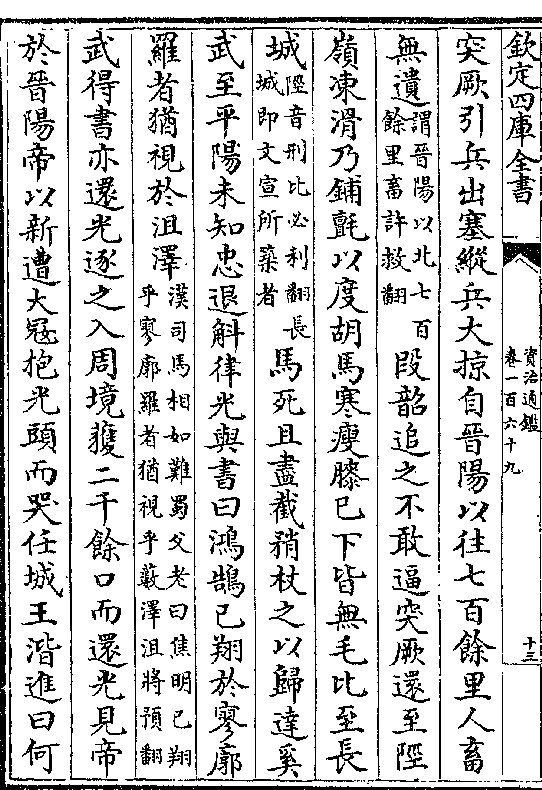 欽定四庫全書
資治通鑑
卷一百六十九
十三
突厥引兵出塞縱兵大掠自晉陽以往七百餘里人畜
無遺謂晉陽以北七百餘里畜許救翻段韶追之不敢逼突厥還至陘
嶺凍滑乃鋪氈以度胡馬寒瘦膝已下皆無毛比至長
城陘音刑比必利翻長城即文宣所築者馬死且盡截矟杖之以歸達奚
武至平陽未知忠退斛律光與書曰鴻鵠已翔於寥廓
羅者猶視於沮澤漢司馬相如難蜀父老曰焦明已翔乎寥廓羅者猶視乎藪澤沮將預翻
武得書亦還光逐之入周境獲二千餘口而還光見帝
於晉陽帝以新遭大寇抱光頭而哭任城王湝進曰何